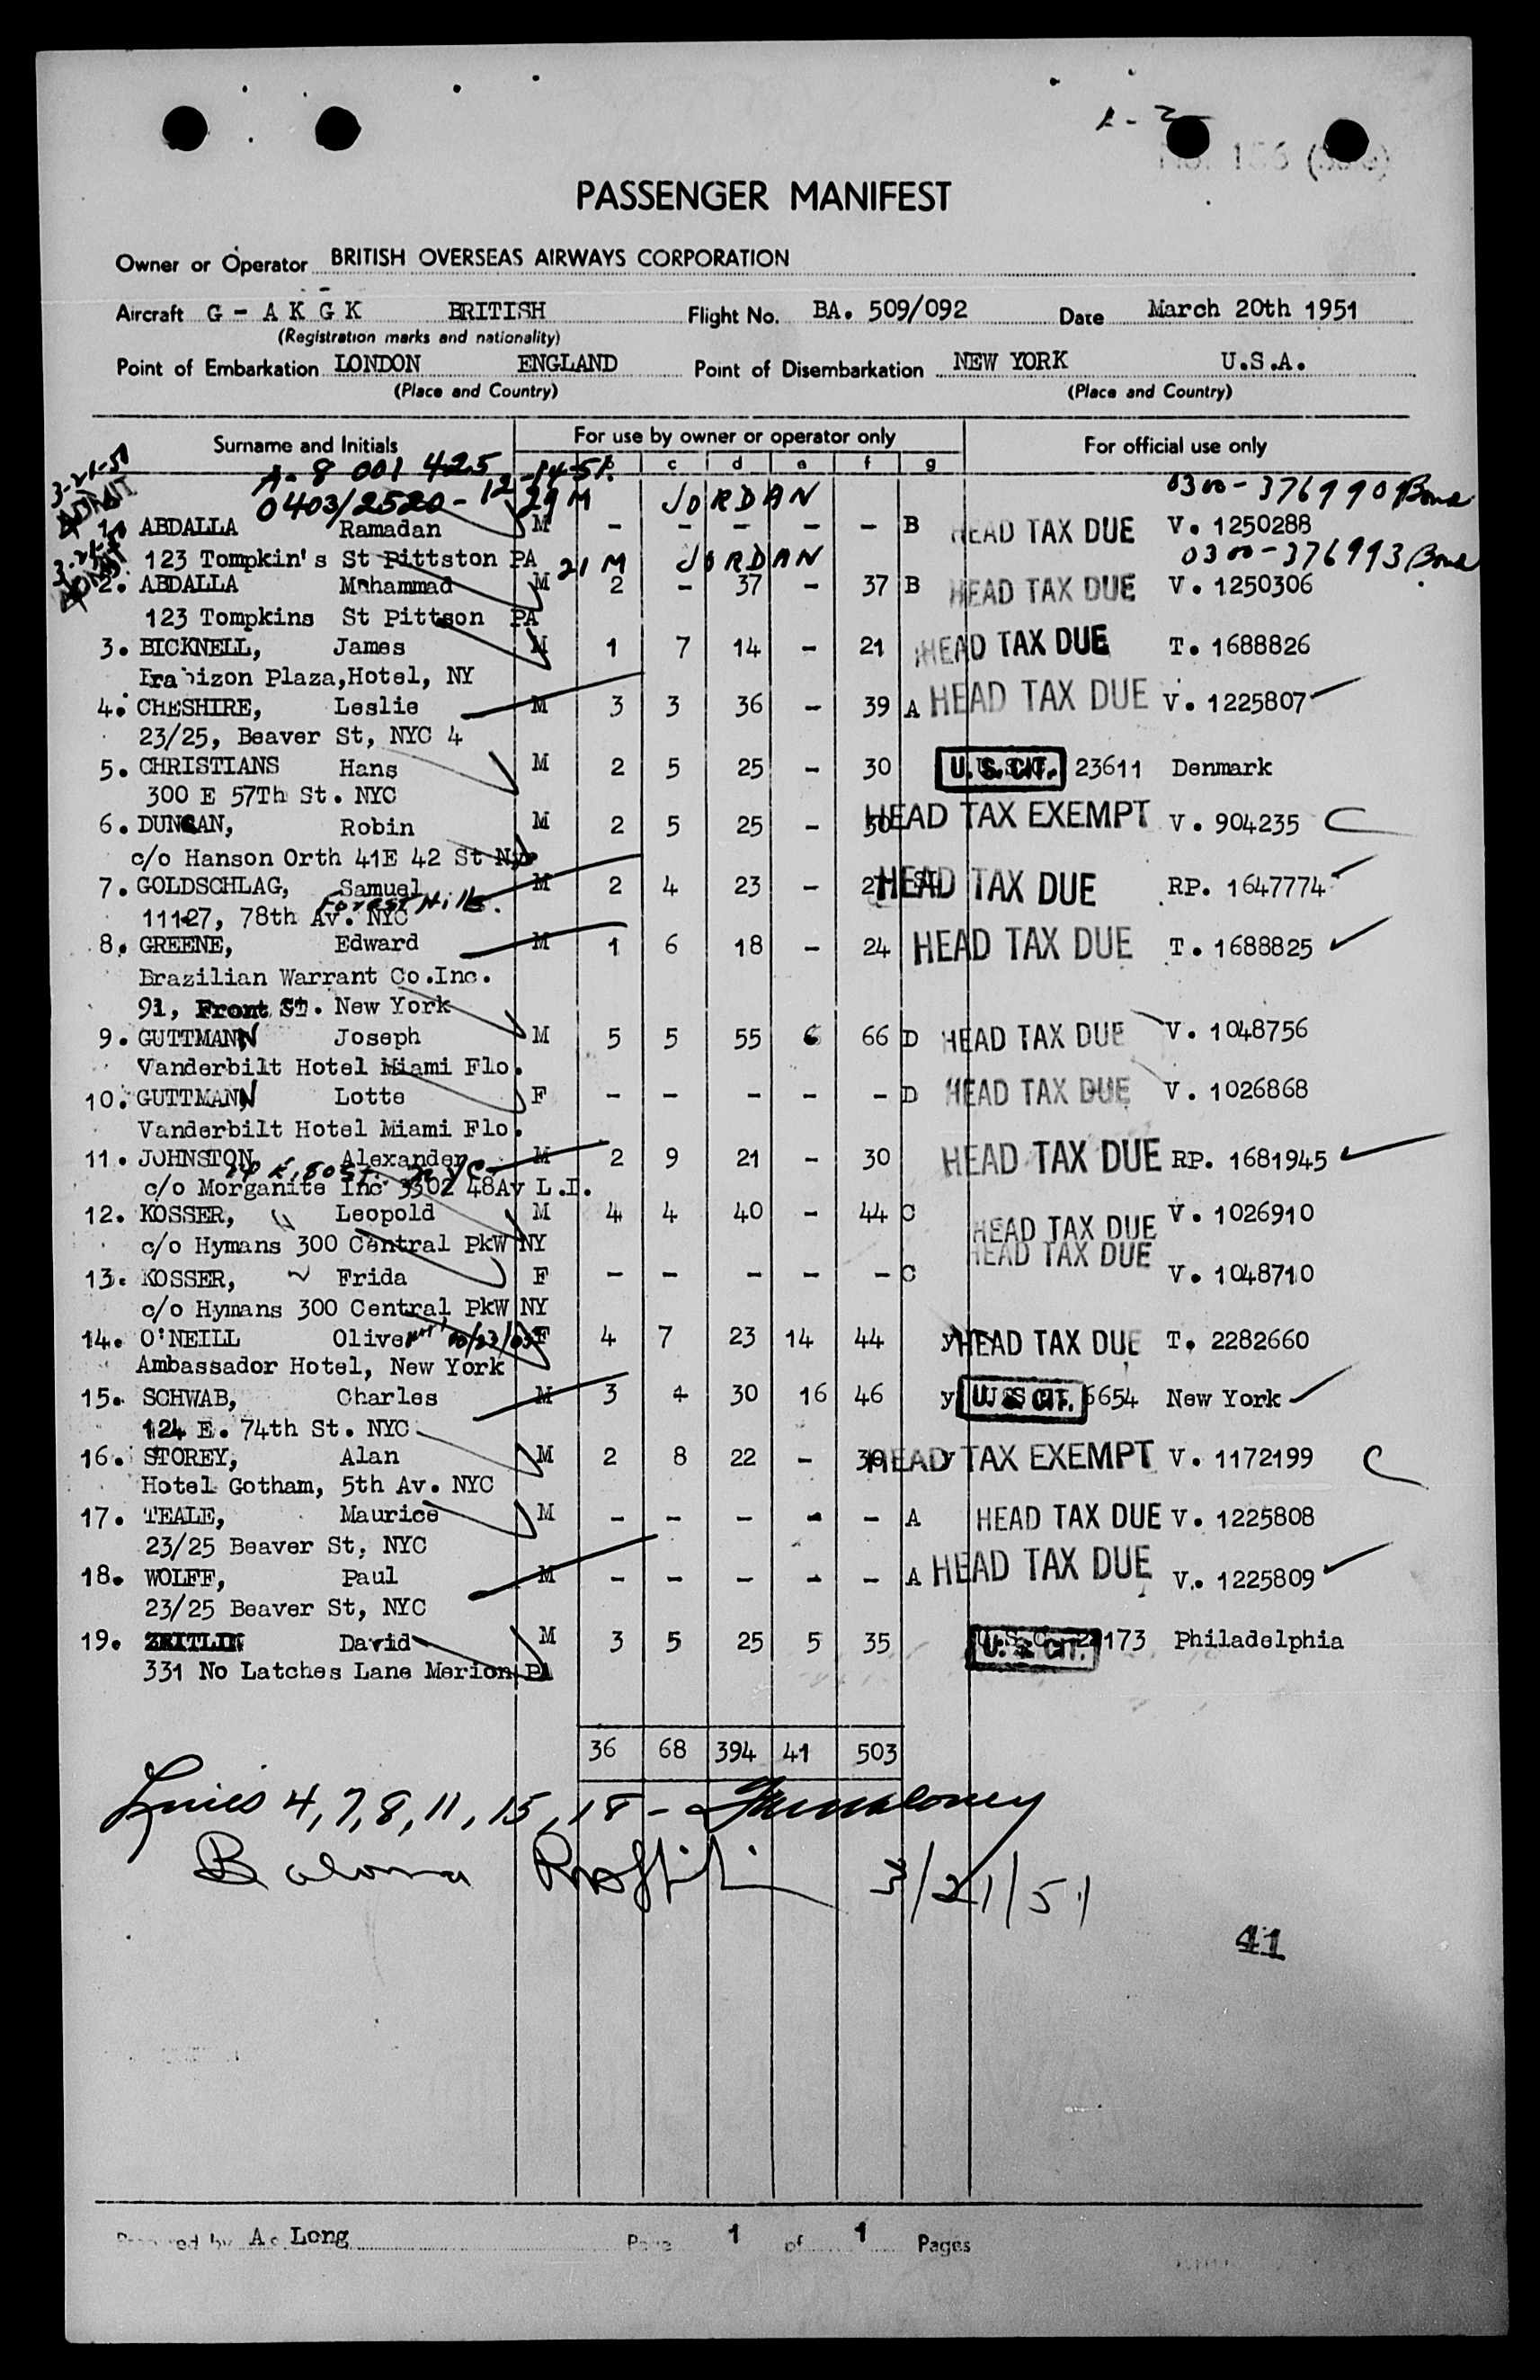 PASSENGER MANIFEST
Owner or Operator BRITISH OVERSEAS AIRWAYS CORPORATION
Aircraft G - A K G K BRITISH Flight No. BA. 509/092 Date March 20th 1951
(Registration marks and nationality)
Point of Embarkation LONDON ENGLAND Point of Disembarkation NEW YORK U.S.A.
(Place and Country) (Place and Country)
Surname and Initials For use by owner or operator only For official use only
b c d e f g
A-8 001 425
3-21-51 ADMIT 0403/2520 - 12-14-51. 29 M JORDAN 0300-376990 Bond
1. ABDALLA Ramadan M - - - - - B HEAD TAX DUE V. 1250288
123 Tompkin's St Pittston PA 21 M JORDAN 0300-376993 Bond
3-21-51 ADMIT
2. ABDALLA Mohammad M 2 - 37 - 37 B HEAD TAX DUE V. 1250306
123 Tompkins St Pittson PA
3. BICKNELL, James M 1 7 14 - 21 HEAD TAX DUE T. 1688826
Plaza,Hotel, NY
4. CHESHIRE, Leslie M 3 3 36 - 39 A HEAD TAX DUE V. 1225807
23/25, Beaver St, NYC 4
5. CHRISTIANS Hans M 2 5 25 - 30 U.S. CIT. 23611 Denmark
300 E 57Th St. NYC
6. DUNCAN, Robin M 2 5 25 - 30 HEAD TAX EXEMPT V. 904235 C
c/o Hanson Orth 41E 42 St NY
7. GOLDSCHLAG, Samuel M 2 4 23 - 27 HEAD TAX DUE RP. 1647774
Forest Hills.
11127, 78th Av. NYC
8. GREENE, Edward M 1 6 18 - 24 HEAD TAX DUE T. 1688825
Brazilian Warrant Co.Inc.
91, Front St. New York
9. GUTTMANN Joseph M 5 5 55 6 66 D HEAD TAX DUE V. 1048756
Vanderbilt Hotel Miami Flo.
10. GUTTMANN Lotte F - - - - - D HEAD TAX DUE V. 1026868
Vanderbilt Hotel Miami Flo.
11. JOHNSTON Alexander M 2 9 21 - 30 HEAD TAX DUE RP. 1681945
c/o Morganite Inc 3302 48Av L.I.
12. KOSSER, Leopold M 4 4 40 - 44 C HEAD TAX DUE V. 1026910
c/o Hymans 300 Central PkW NY HEAD TAX DUE
13. KOSSER, Frida F - - - - - C V. 1048710
c/o Hymans 300 Central PkW NY
14. O'NEILL Oliver F 4 7 23 14 44 y HEAD TAX DUE T. 2282660
Ambassador Hotel, New York
15. SCHWAB, Charles M 3 4 30 16 46 y U.S. CIT. 6654 New York
124 E. 74th St. NYC
16. STOREY, Alan M 2 8 22 - 30 y HEAD TAX EXEMPT V. 1172199 C
Hotel Gotham, 5th Av. NYC
17. TEALE, Maurice M - - - - - A HEAD TAX DUE V. 1225808
23/25 Beaver St, NYC
18. WOLFF, Paul M - - - - - A HEAD TAX DUE V. 1225809
23/25 Beaver St, NYC
19. ZEITLIN David M 3 5 25 5 35 U.S. CIT. 173 Philadelphia
331 No Latches Lane Merion PA
36 68 394 41 503
Lines 4, 7, 8, 11, 15, 18 -
3/21/51
41
Prepared by A. Long Page 1 of 1 Pages